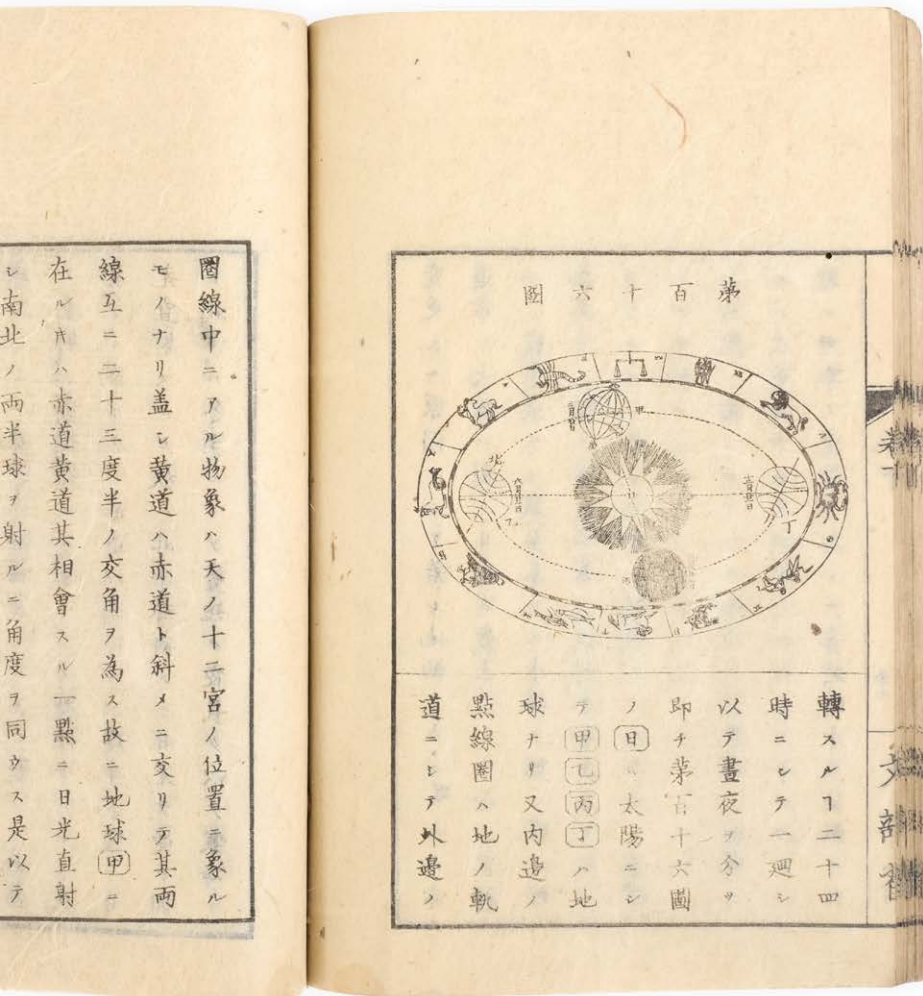 第百十六圖
轉スルヿ二十四
時ニシテ一廻シ
以テ晝夜ヲ分ツ
即チ第百十六圖
ノ日ハ太陽ニシ
テ甲乙丙丁ハ地
球ナリ又内邊ノ
點線圏ハ地ノ軌
道ニシテ外邊ノ
圏線中ニアル物象ハ天ノ十二宮ノ位置ニ象ル
モノナリ蓋シ黄道ハ赤道ト斜メニ交リテ其両
線互ニ二十三度半ノ交角ヲ為ス故ニ地球甲ニ
在ルキハ赤道黄道其相會スル一點ニ日光直射
シ南北ノ両半球ヲ射ルニ角度ヲ同ウス是以テ